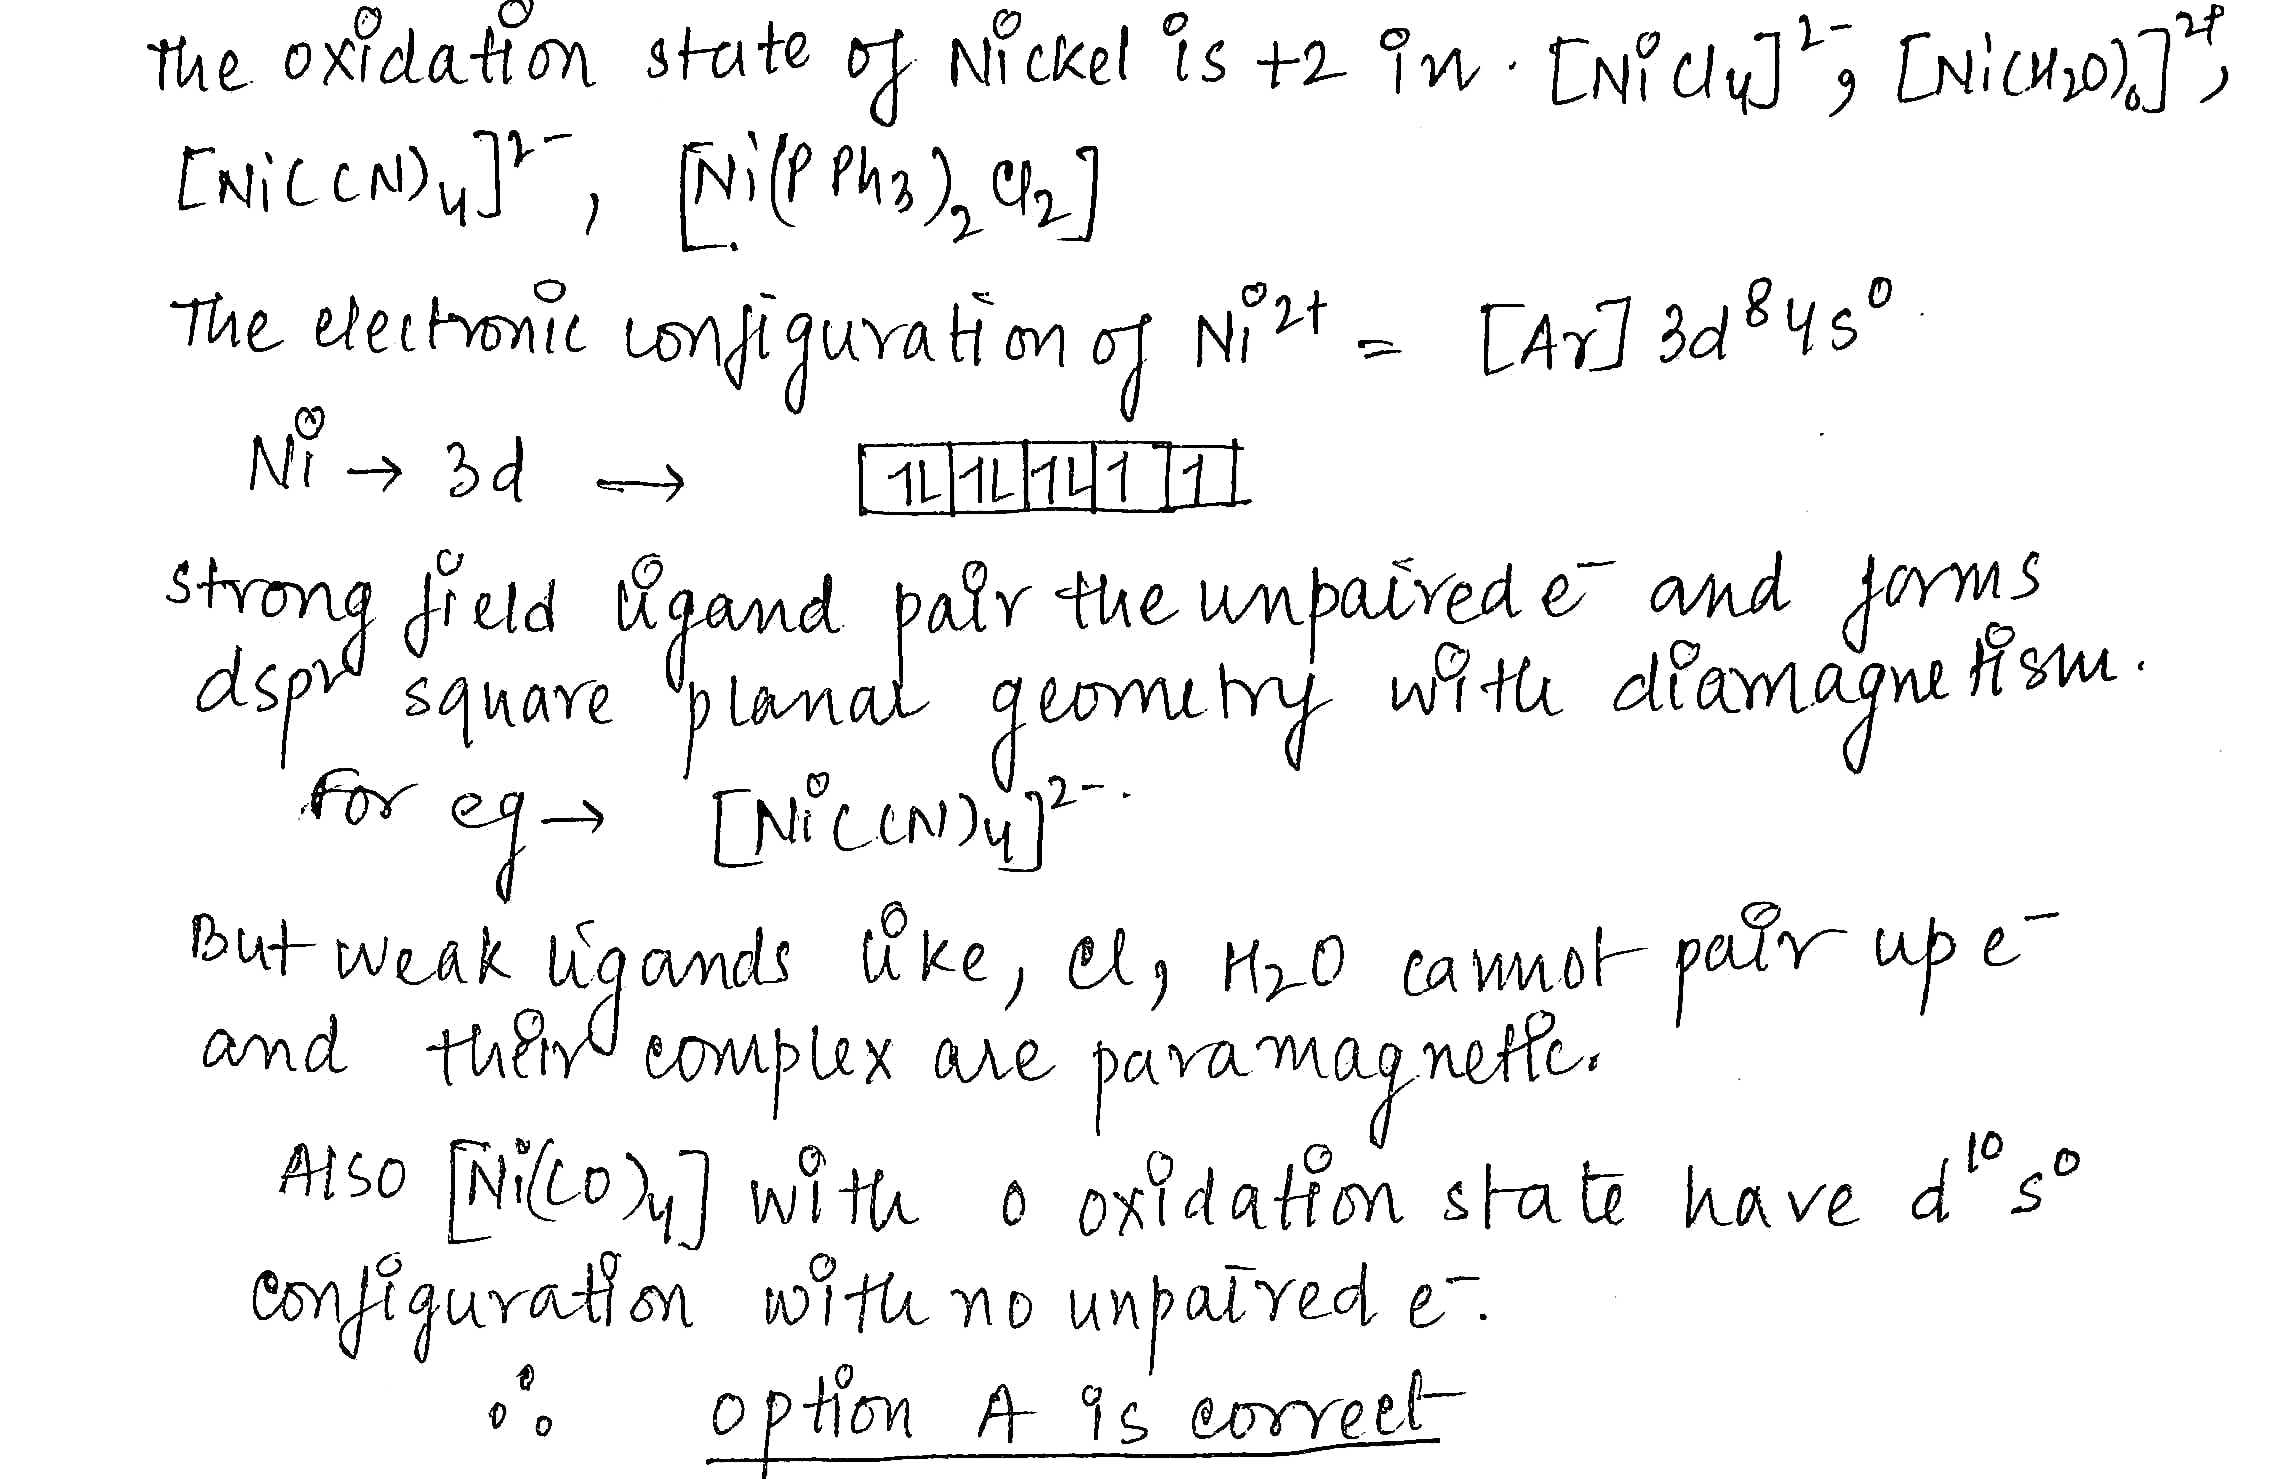 The oxidation state of Nickel is +2 in. [NiCl4]2-, [Ni(H2O)6]2+,
[Ni(CN)4]2-, [Ni(PPh3)2Cl2]
The electronic configuration of Ni2+ = [Ar] 3d8 4s0
Ni → 3d → 1L 1L 1L 1 1
strong field ligand pair the unpaired e- and forms
dsp2 square planar geometry with diamagnetism.
For eg → [Ni(CN)4]2-.
But weak ligands like, Cl, H2O cannot pair up e-
and their complex are paramagnetic.
Also [Ni(CO)4] with 0 oxidation state have d10 s0
configuration with no unpaired e-.
∴ option A is correct